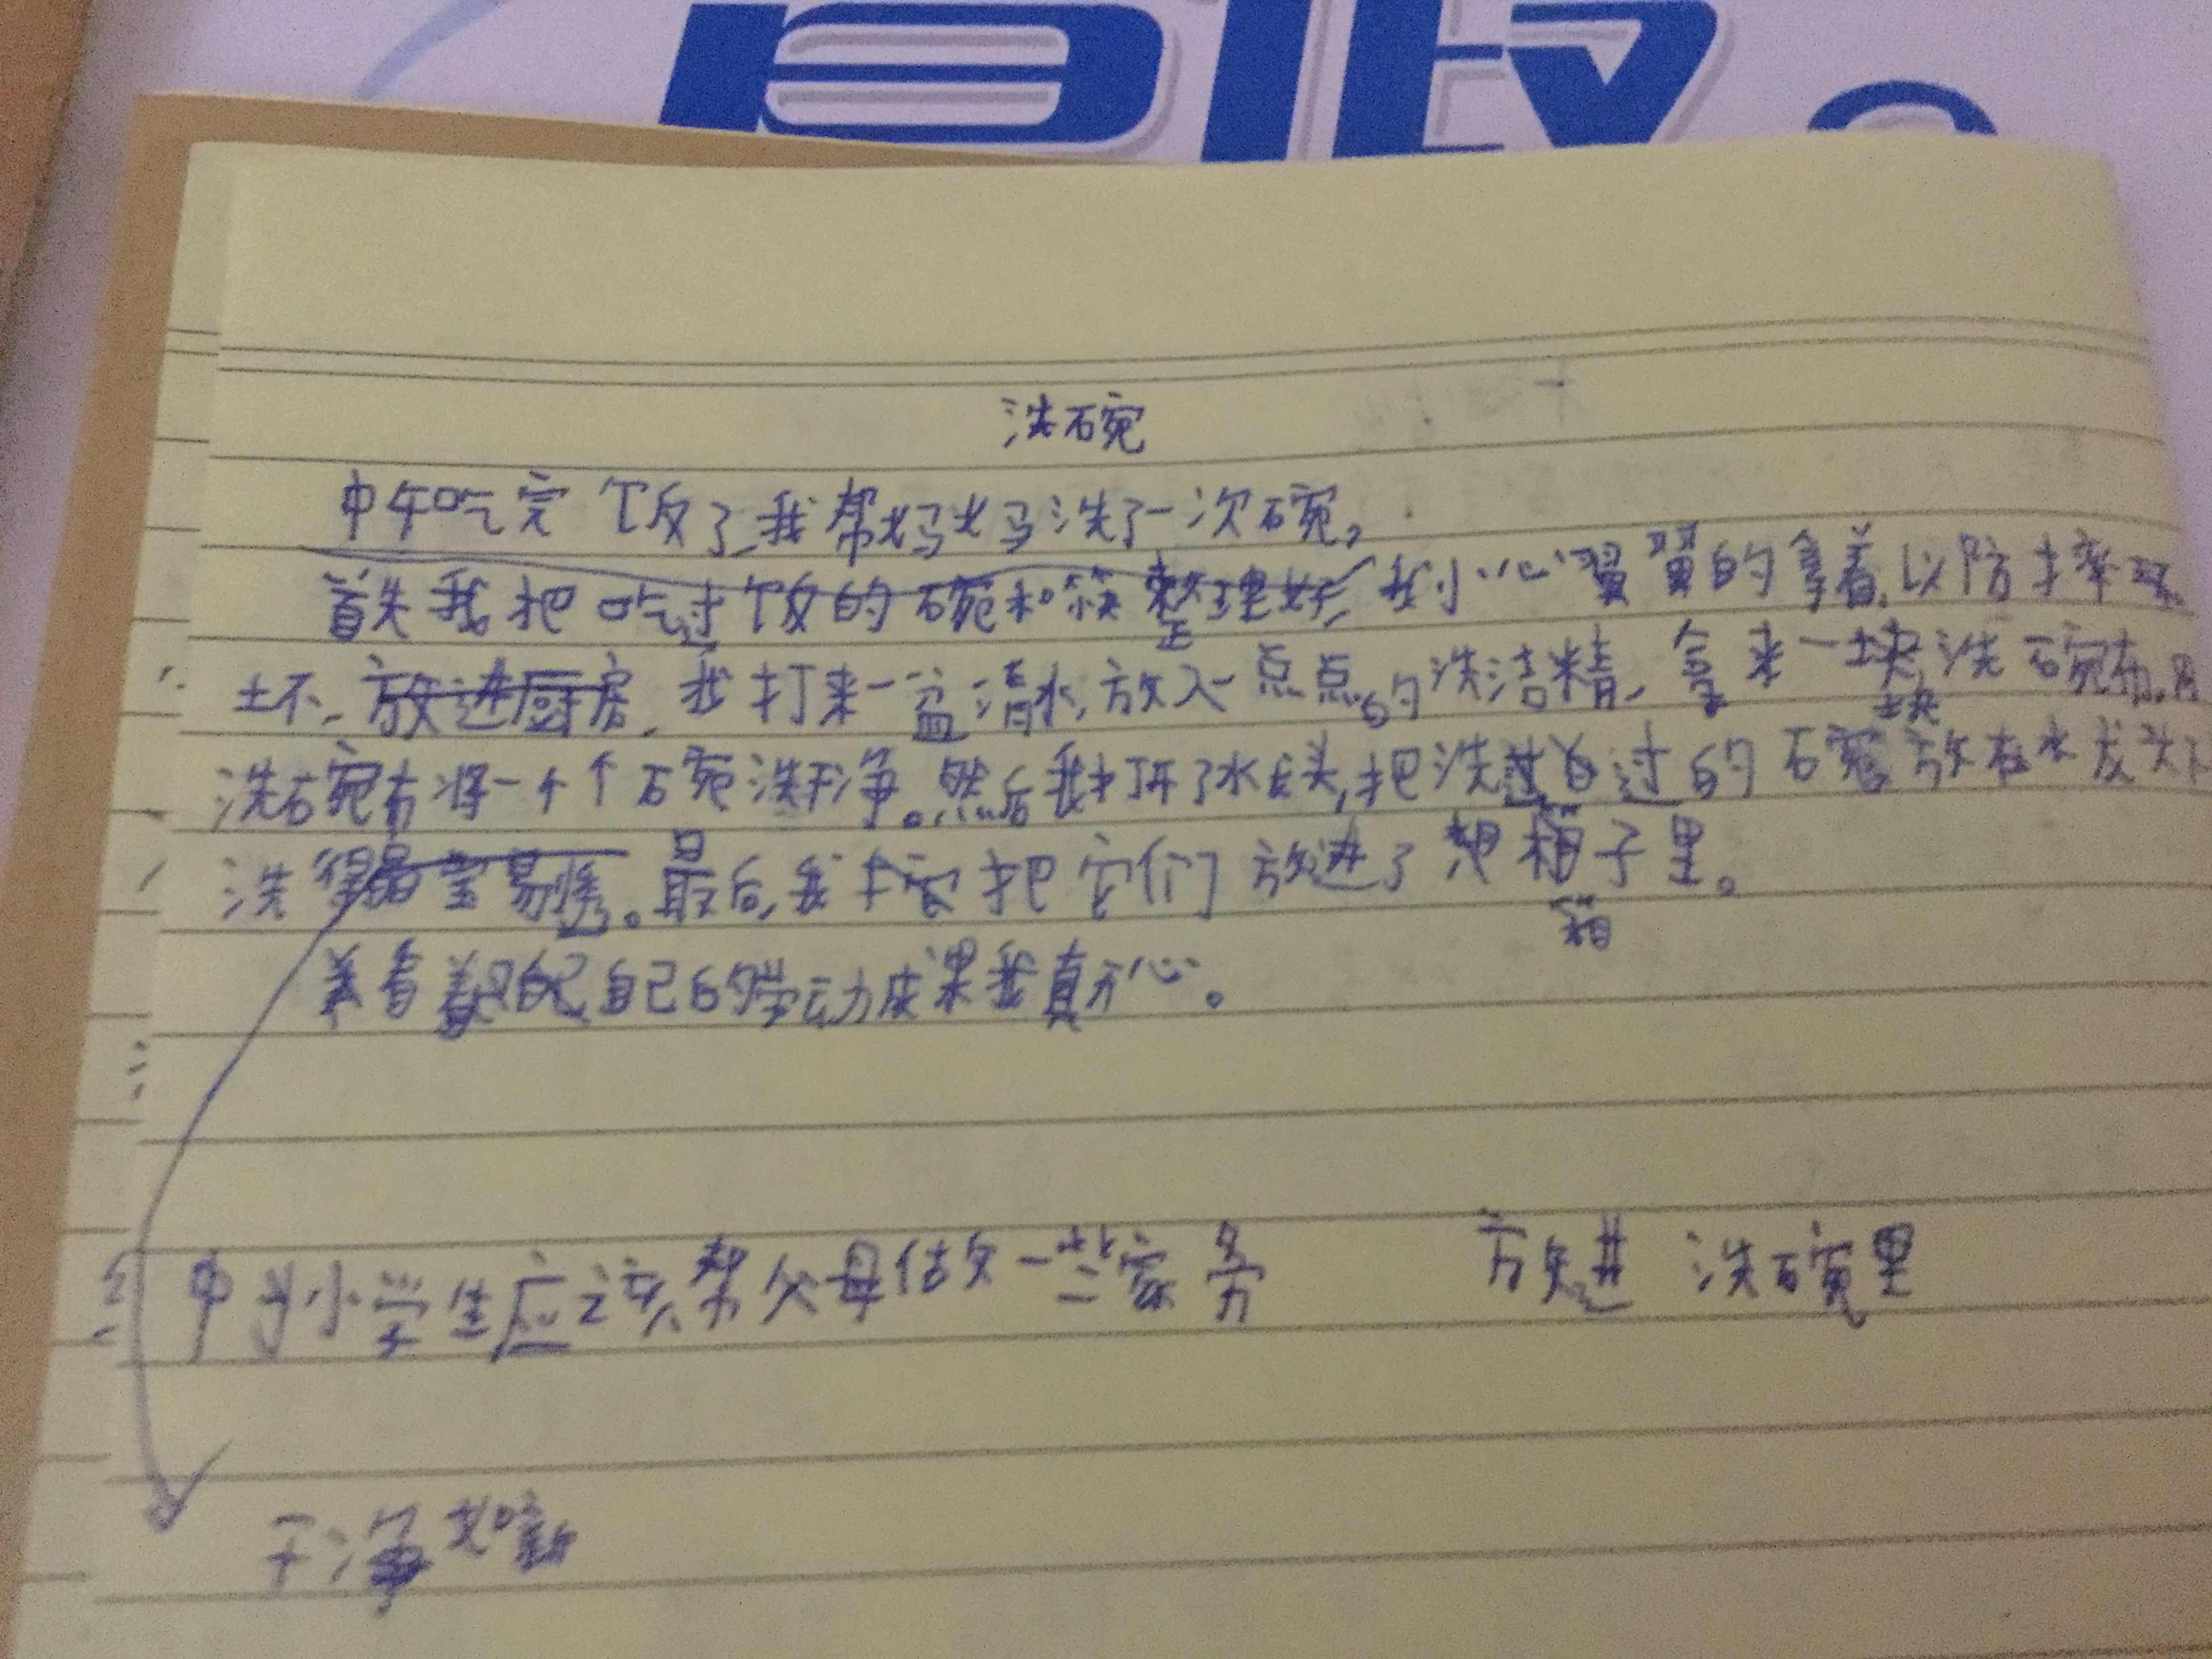 洗碗
中午吃完饭了,我帮妈妈洗了一次碗,
首先我把吃过饭的碗和筷整理好,我小心翼翼的拿着,以防摔坏
坏,放进厨房,我打来一盆清水,放入一点点的洗洁精,拿来一块洗碗布,用
块
洗碗布将一个个碗洗干净。然后我打开了水龙头,把洗过的碗放在水龙头下
洗得晶莹易透。最后,我才把它们放进了箱子里。
箱
看着自己的劳动成果我真开心。
中小学生应该帮父母做一些家务 放进洗碗里
干净如新